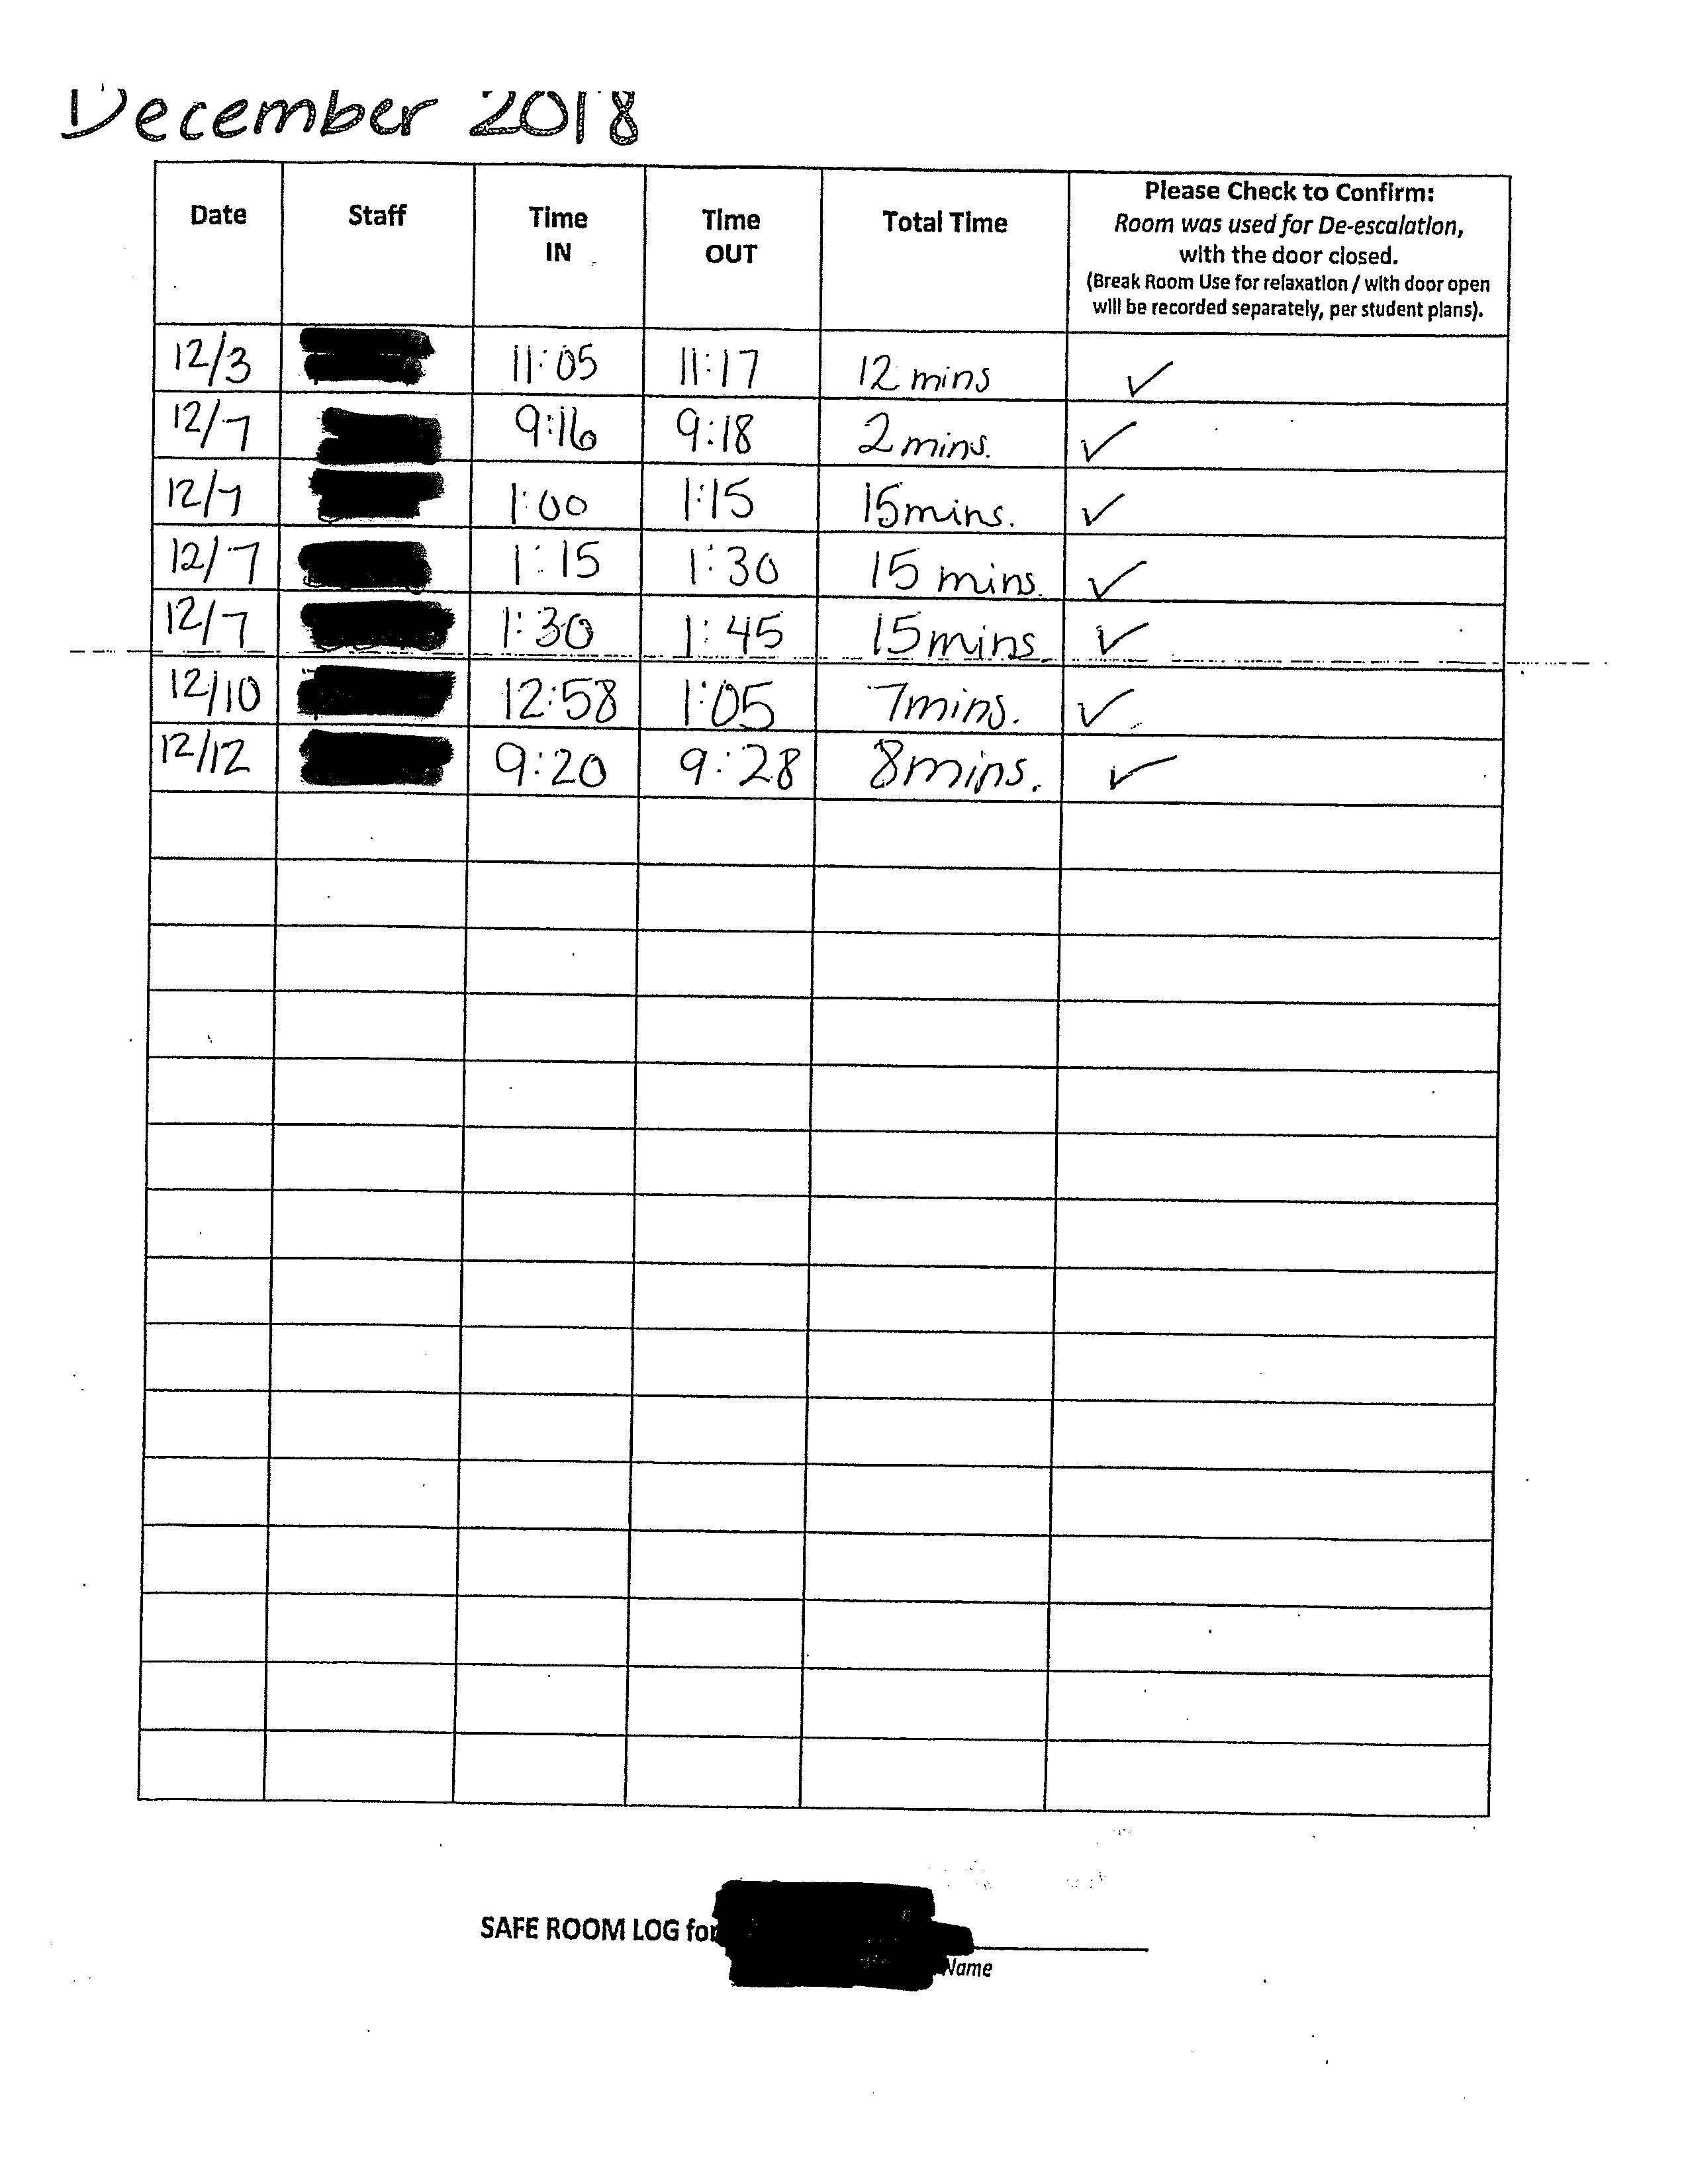 December 2018
Date Staff Time IN Time OUT Total Time Please Check to Confirm:
Room was used for De-escalation,
with the door closed.
(Break Room Use for relaxation / with door open
will be recorded separately, per student plans).
12/3 11:05 11:17 12 mins ✓
12/7 9:16 9:18 2 mins. ✓
12/7 1:00 1:15 15 mins. ✓
12/7 1:15 1:30 15 mins. ✓
12/7 1:30 1:45 15 mins ✓
12/10 12:58 1:05 7 mins. ✓
12/12 9:20 9:28 8 mins. ✓
SAFE ROOM LOG for
Name